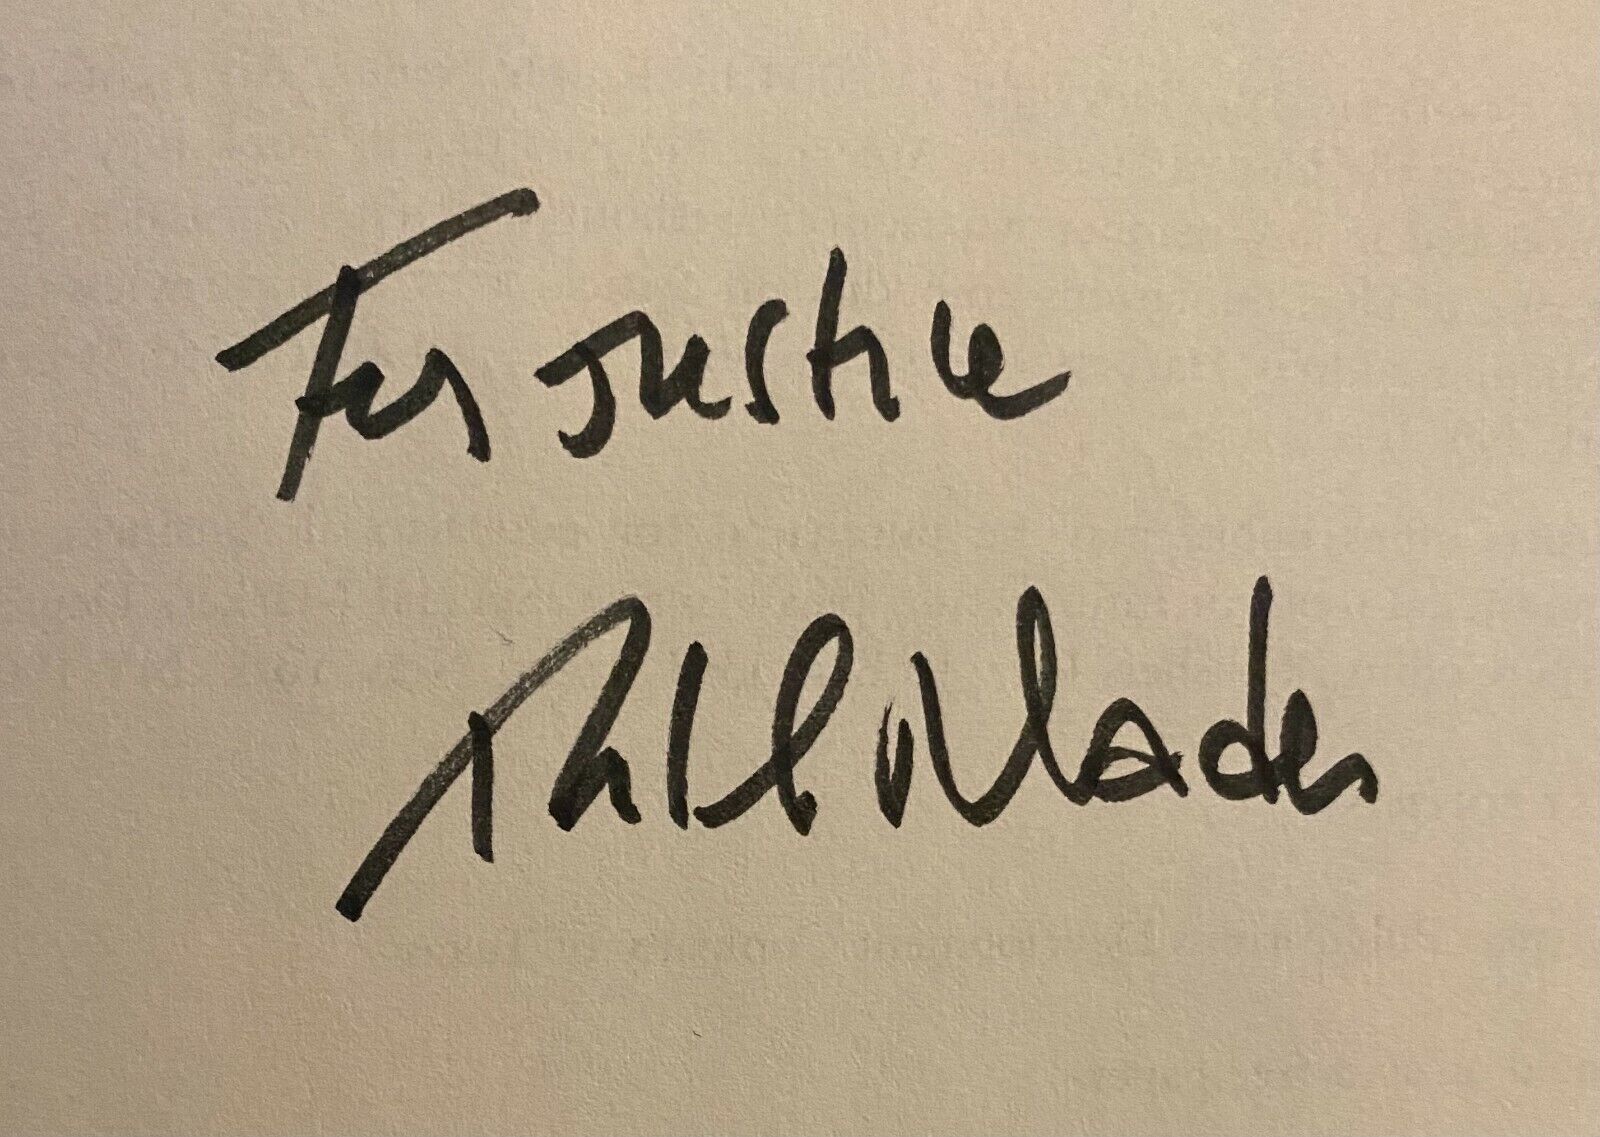 For justice
Ralph Nader